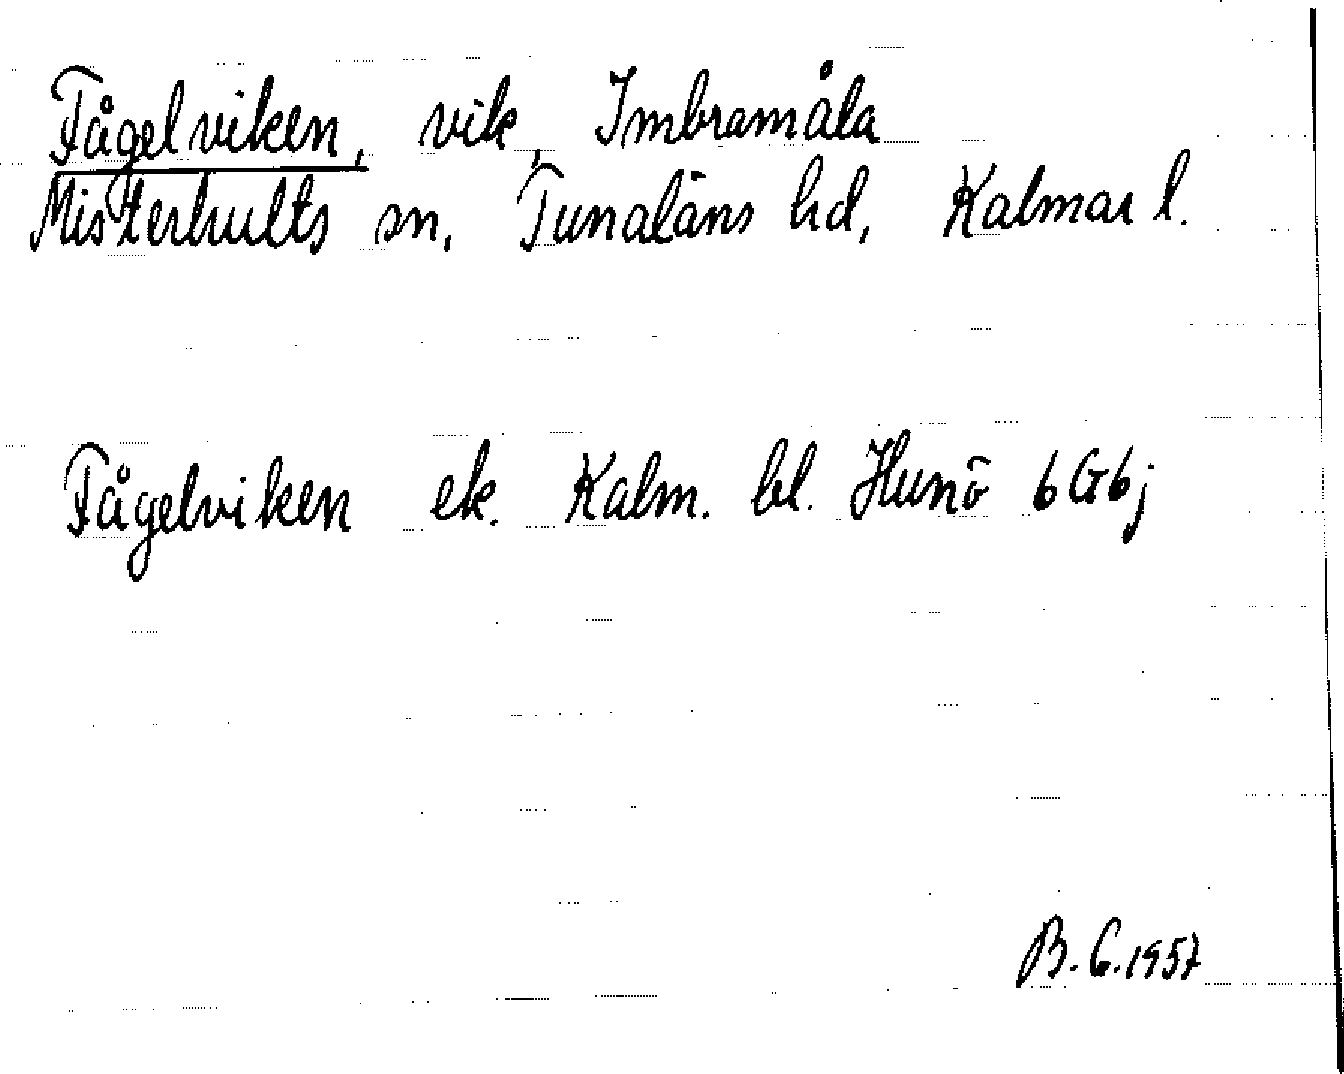 Fågelviken, vik, Imbramåla
Misterhults sn, Tunaläns hd, Kalmar l.
Fågelviken ek. Kalm. bl. Hunö 6G6j
B. G. 1957